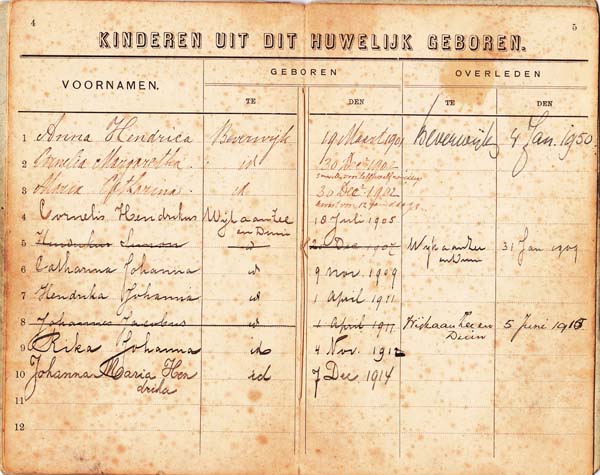 4 5
KINDEREN UIT DIT HUWELIJK GEBOREN.
VOORNAMEN. GEBOREN OVERLEDEN
TE DEN TE DEN
1 Anna Hendrica Beverwijk 19 Maart 1901 Beverwijk 4 Jan. 1950
2 Cornelia Margaretha id 30 Dec 1902
3 Maria Catharina id 30 Dec 1902
4 Cornelis Hendrikus Wijk aan Zee en Duin 18 Juli 1905
5 Hendrikus Simon id 2 Dec 1907 Wijk aan Zee en Duin 31 Jan 1909
6 Catharina Johanna id 9 nov. 1909
7 Hendrika Johanna id 1 April 1911
8 Johannes Jacobus id 1 April 1911 Wijk aan Zee en Duin 5 Juni 1915
9 Rika Johanna id 4 Nov. 1912
10 Johanna Maria Hen id 7 Dec 1914
drika
11
12